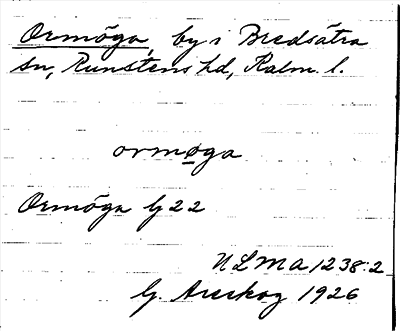 Ormöga, by i Bredsätra
sn, Runstens hd, Kalm. l.
ormøga
Ormöga lj 22
NLMA 1238:2
G. Areskog 1926